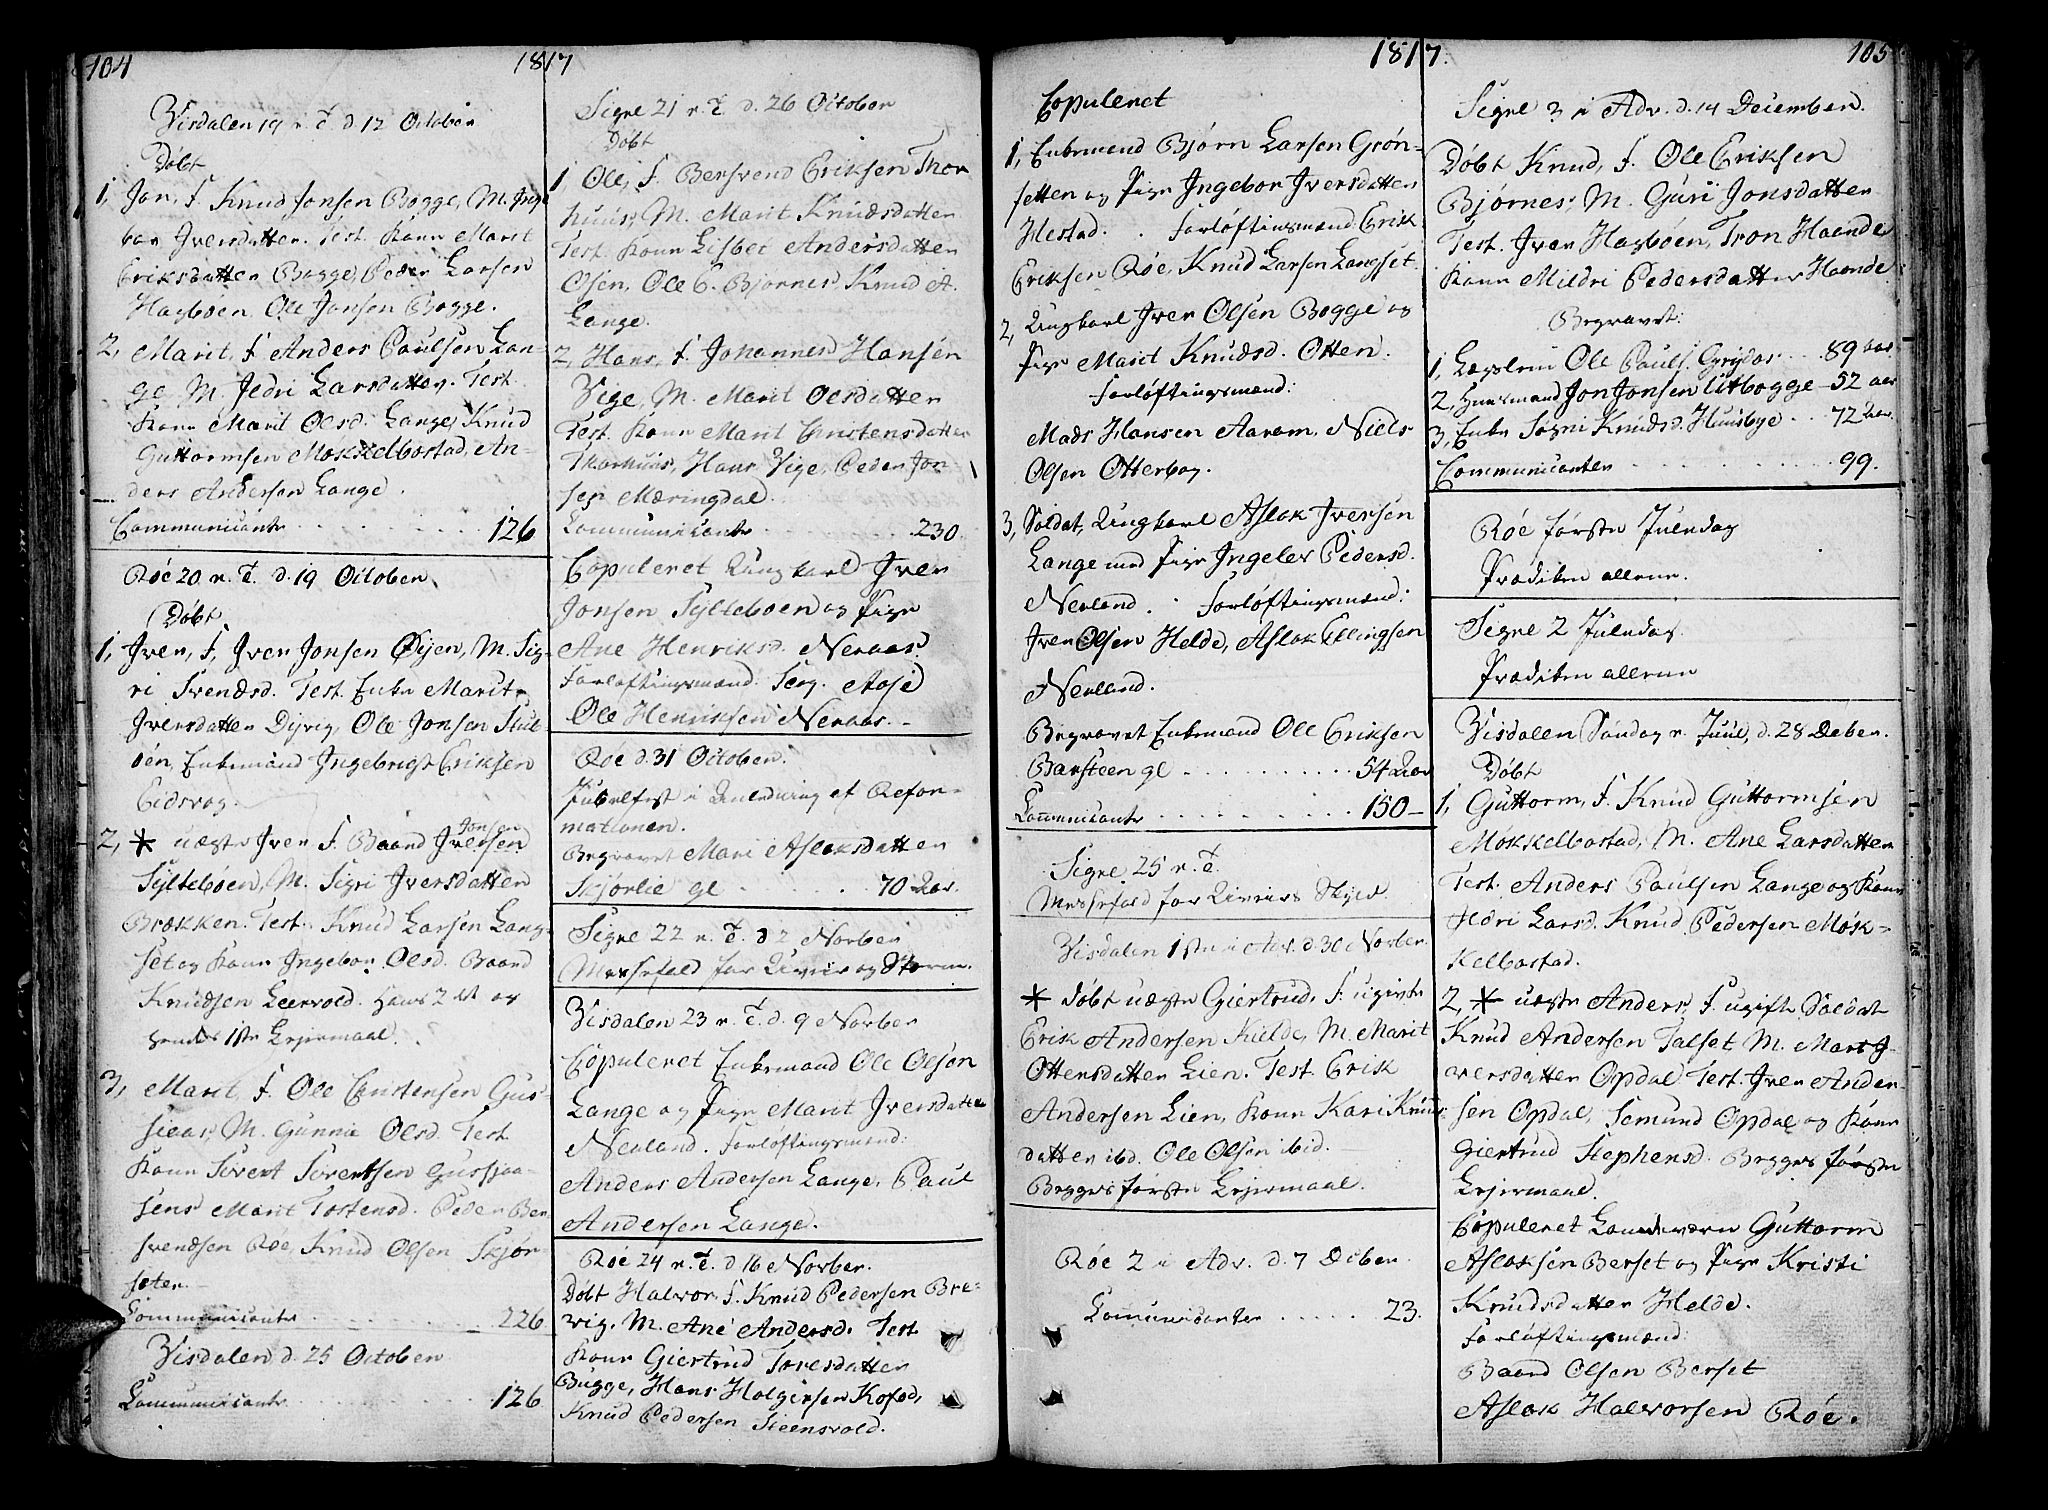 104
1817
Visdalen 19 n. T. d. 12 October
Døbt
1, Jon, F. Knud Jonsen Bogge, M. Inge
bor Iversdatter. Test. Konn Marit
Eriksdatter Bogge, Peder Larsen
Hagbøen, Ole Jonsen Bogge.
2, Marit, F. Anders Paulsen Lan-
ge, M. Jedri Larsdatter. Test.
Konn Marit Olsd. Lange, Knud
Guttormsen Møkkelbostad, An-
ders Andersen Lange.
Communicanter 126
Røe 20 n. T. d. 19 October
Døbt
1, Iver, F. Iver Jonsen Øijen, M. Sig-
ri Svendsd. Test. Enke Marit
Iversdatter Dyrvig, Ole Jonsen Stub-
øen, Enkemand Ingebrigt Eriksen
Eidsvog.
2, * uægte Iver F. Baard Iversen
Jonsen
Sylteboen, M. Sigri Iversdatter
Brækken. Test. Knud Larsen Lang-
set og Konn Ingebor Olsd. Baard
Knudsen Leervold. Hans 2 det og
hendes 1ste Lejermaal.
3, Marit, F. Ole Christensen Gus-
sieas, M. Gunnil Olsd. Test.
Konn Sivert Sivertsen Gussjaa-
sens Marit Tostensd. Peder Ber
svendsen Røe, Knud Olsen Skjør-
sæter.
Communicanter 226
Visdalen d. 25 October
Communicanter 126
Sigre 21 n. T. d. 26 October
Døbt
1, Ole, F. Bersvend Eriksen Thor
huus, M. Marit Knudsdatter
Test. Konn Lisbet Andersdatter
Osen, Ole E. Bjørnes Knud A.
Lange.
2, Hans, F. Johannes Hansen
Vige, M. Marit Olsdatter
Test. Konn Marit Christensdatter
Thorhuus, Hans Vige, Peder Jon-
sen Mæringdal.
Communicanter 230
Copuleret Ungkarl Iver
Jonsen Sylteboen og Pige
Ane Henriksd. Neraas
Forloftingsmænd: Serg. Aase
Ole Henriksen Neraas.
Røe d. 31 October.
Jubelfest i Anledning af Refor-
mationen.
Begravet Mari Aslaksdatter
Skjorlie gl 70 Aar.
Sigre 22 n. T. d 2 Novber
Messefald for Uveir og Storm.
Visdalen 23 n. T. d. 9 Novber
Copuleret Enkemand Ole Olsen
Lange og Pige Marit Iversdatter
Nerland. Forloftingsmænd:
Anders Andersen Lange, Paul
Andersen Lange.
Røe 24 n. T. d 16 Novber.
Døbt Halvor, F. Knud Pedersen Bre-
vig. M. Ane Andersd. Test
Konn Giertrud Toresdatter
Bugge, Hans Holgersen Kofod,
Knud Pedersen Steensvold.
1817.
105
Copuleret
1, Enkemand Bjørn Larsen Grøn-
setten og Pige Ingebor Iversdatter
Hestad. Forløftingsmænd Erik
Eriksen Røe, Knud Larsen Langset.
2, Ungkarl Iver Olsen Bogge og
Pige Marit Knudsd. Otten.
Forløftingsmænd:
Mads Hansen Aarom, Niels
Olsen Otterbog.
3, Soldat, Ungkarl Aslak Iversen
Lange med Pige Ingeler Pedersd.
Nerland. Forløftingsmænd:
Iver Olsen Helde, Aslak Ellingsen
Nerland.
Begravet Enkemand Ole Eriksen
Barsteen gl 54 Aar
Communicanter 150
Sigre 25 n. T.
Messefald for Uveirs Skyld.
Visdalen 1ste i Adv. d. 30 Novber.
* Døbt uægte Giertrud, F. ugivte
Erik Andersen Kielde, M. Marit
Ottersdatter Lien. Test. Erik
Andersen Lien, Konn Kari Knuds-
datter ibd. Ole Olsen ibid.
Begges første Lejermaal.
Røe 2 i Adv. d. 7 Deceber.
Comunicanter 23.
Sigre 3 i Adv. d. 14 December.
Døbt Knud, F. Ole Eriksen
Bjørnes, M. Guri Jonsdatter
Test. Iver Hagbøen, Tron Haende
Konn Mildri Pedersdatter Haende
Begravet:
1, Lægslem Ole Pauls. Grydas 89 aar
2, Huusmand Jon Jonsen Utbogge 52 aar
3, Enke Sogni Knudsd. Huusbye 72 Aar
Communicanter 99.
Røe første Juledag
Prædiken allene.
Sigre 2 Juledag.
Prædiken allene
Visdalen Søndag n. Juul, d. 28 Deber.
Døbt
1, Guttorm, F. Knud Guttormsen
Møkkelbostad, M. Ane Larsdatter
Test. Anders Paulsen Lange og Konn
Jedri Larsd. Knud Pedersen Møk-
kelbostad.
2, * uægte Anders, F. ugift Soldat
Knud Andersen Talset M. Marit I-
versdatter Opdal Test. Iver Ander-
sen Opdal, Semund Opdal og Konn
Giertrud Stephensd. Begges første
Lejermaal.
Copuleret Landeværn Guttorm
Aslaksen Berset og Pige Kristi
Knudsdatter Helde.
Forløftingsmænd:
Baard Olsen Berset
Aslak Halvorsen Røe.